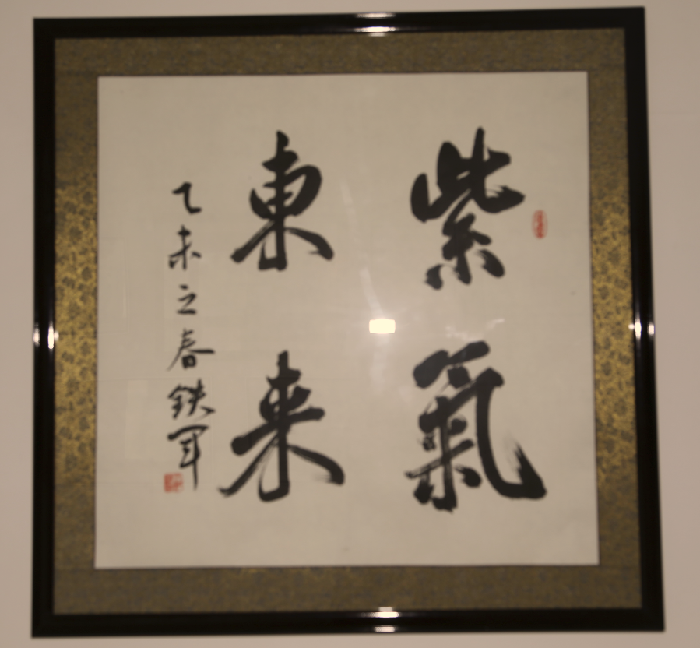 紫氣
東来
乙未之春铁军